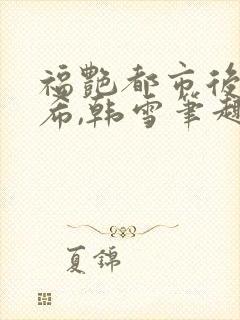 福艷都市後
希,韩雪筆趣
夏錦